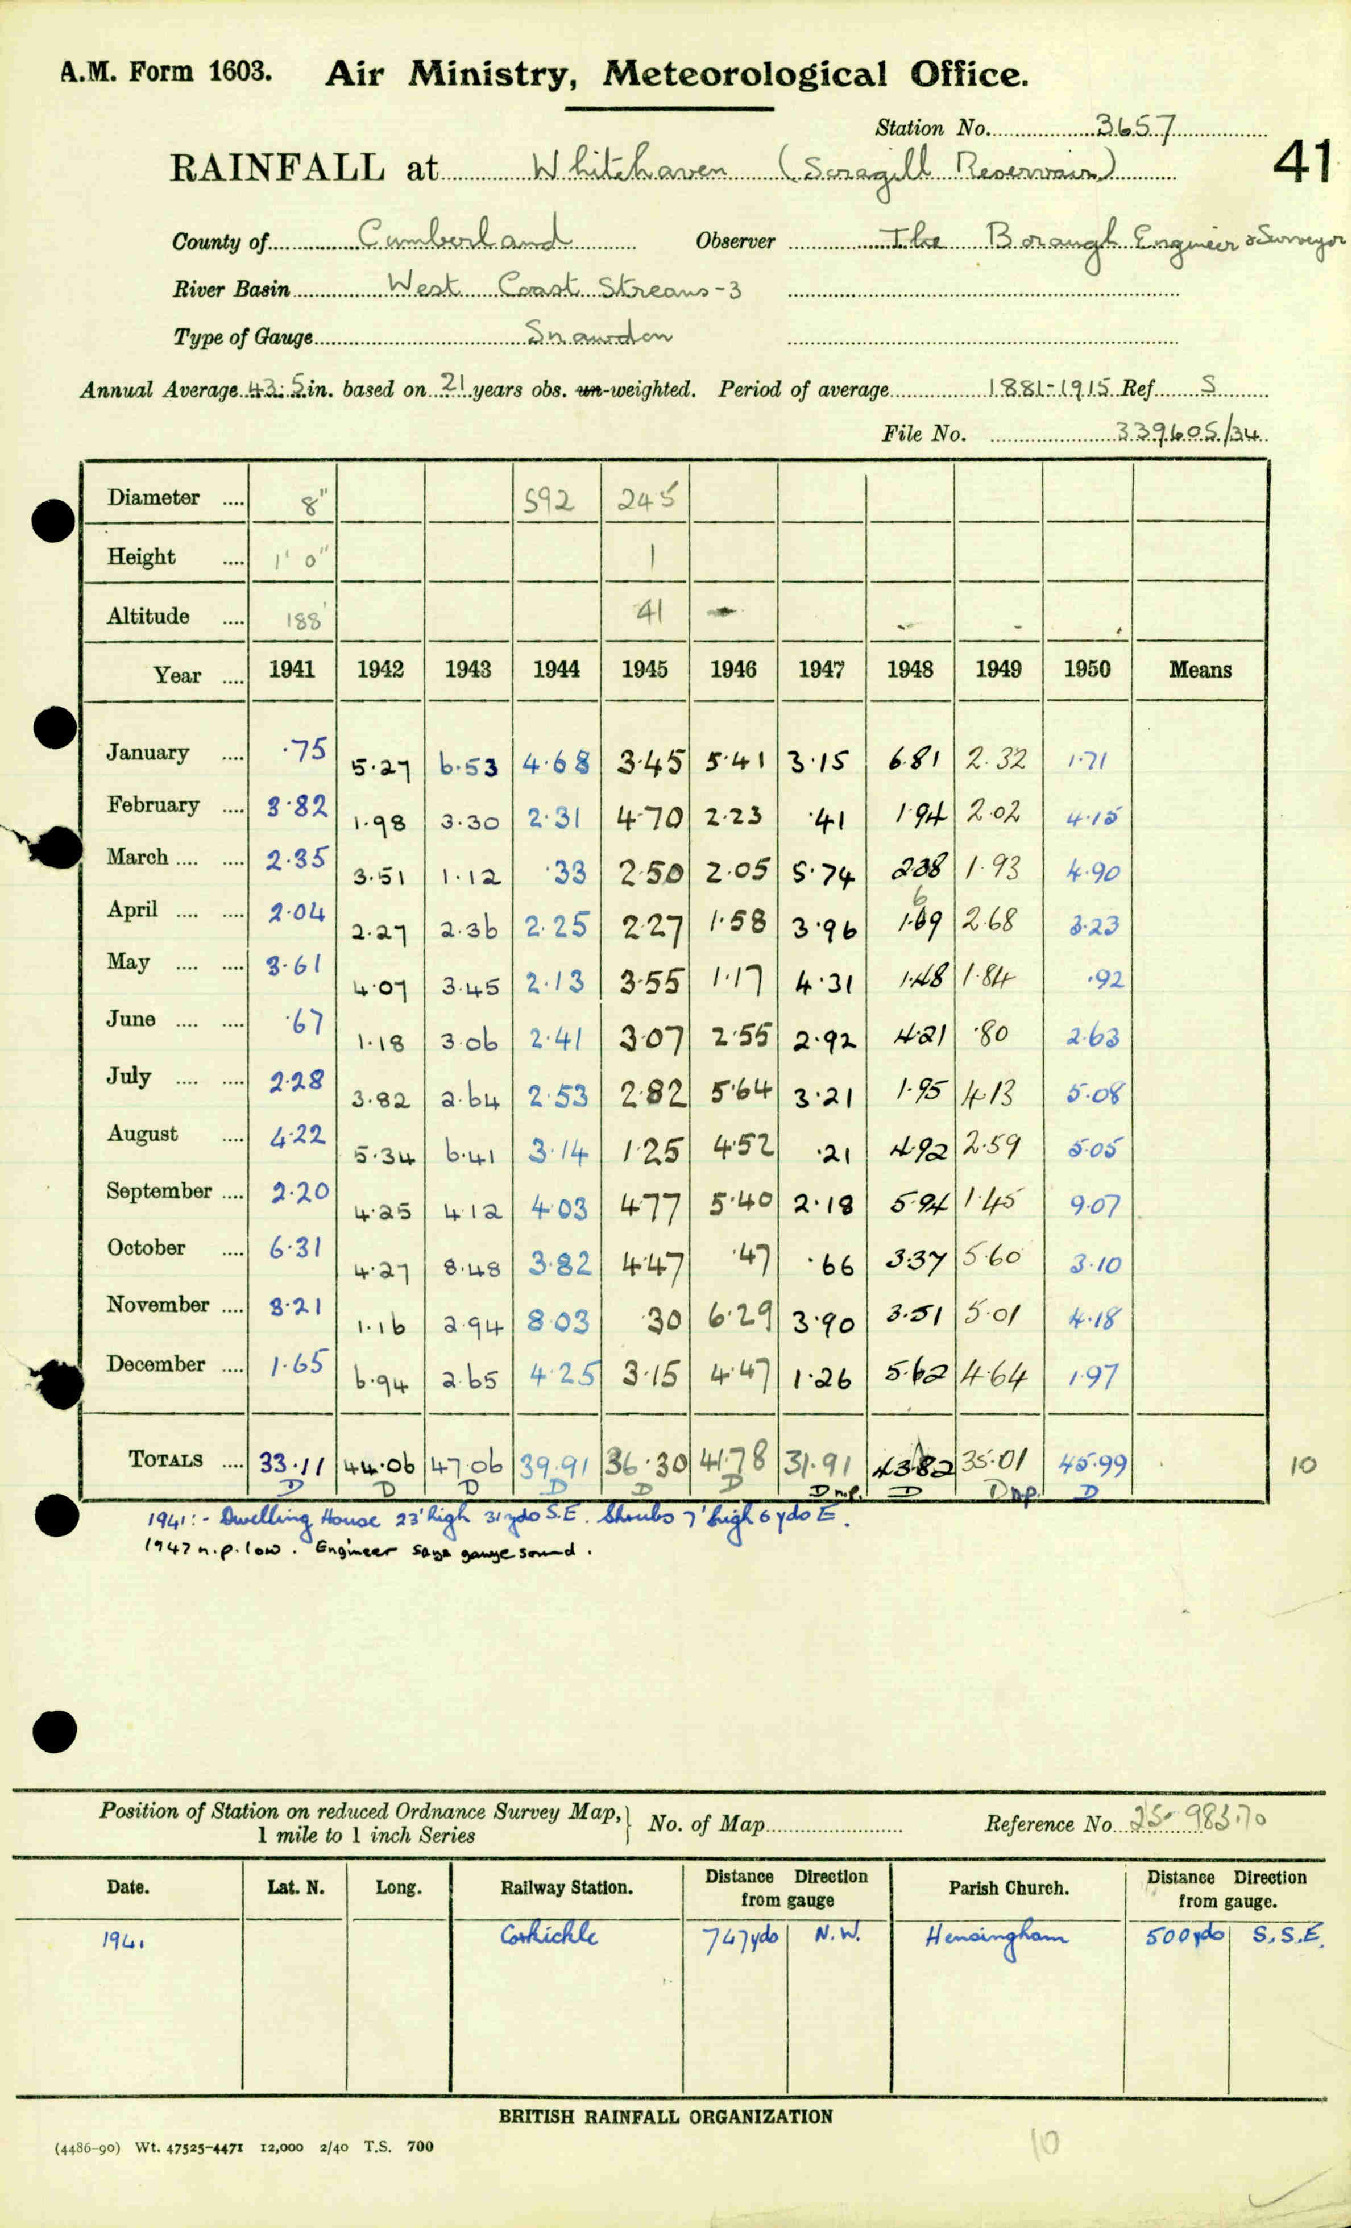 A.M. Form 1603. Air Ministry, Meteorological Office.
Station No. 3657
RAINFALL at Whitehaven (Scragill Reservoir) 41
County of Cumberland Observer The Borough Engineer & Surveyor
River Basin West Coast Streams-3
Type of Gauge Snowdon
Annual Average 43.5 in. based on 21 years obs. un-weighted. Period of average 1881-1915 Ref. S
File No. 339605/34
Diameter .... 8" 592 245
Height .... 1' 0" 1
Altitude .... 188' 41
Year .... 1941 1942 1943 1944 1945 1946 1947 1948 1949 1950 Means
January .... .75 5.27 6.53 4.68 3.45 5.41 3.15 6.81 2.32 1.71
February .... 3.82 1.98 3.30 2.31 4.70 2.23 .41 1.94 2.02 4.15
March .... .... 2.35 3.51 1.12 .33 2.50 2.05 5.74 2.38 1.93 4.90
April .... .... 2.04 2.27 2.36 2.25 2.27 1.58 3.96 1.69 2.68 3.23
May .... .... 3.61 4.07 3.45 2.13 3.55 1.17 4.31 1.48 1.84 .92
June .... .... .67 1.18 3.06 2.41 3.07 2.55 2.92 4.21 .80 2.63
July .... .... 2.28 3.82 2.64 2.53 2.82 5.64 3.21 1.95 4.13 5.08
August .... 4.22 5.34 6.41 3.14 1.25 4.52 .21 4.92 2.59 5.05
September .... 2.20 4.25 4.12 4.03 4.77 5.40 2.18 5.94 1.45 9.07
October .... 6.31 4.27 8.48 3.82 4.47 .47 .66 3.37 5.60 3.10
November .... 3.21 1.16 2.94 8.03 .30 6.29 3.90 3.51 5.01 4.18
December .... 1.65 6.94 2.65 4.25 3.15 4.47 1.26 5.62 4.64 1.97
TOTALS .... 33.11 44.06 47.06 39.91 36.30 41.78 31.91 43.82 35.01 45.99 10
D D D D D D D n.p. D D n.p. D
1941:- Dwelling House 23' high 31 yds S.E. Shrubs 7' high 6 yds E.
1947 n.p. low. Engineer says gauge sound.
Position of Station on reduced Ordnance Survey Map, 1 mile to 1 inch Series No. of Map Reference No. 25 983170
Date. Lat. N. Long. Railway Station. Distance Direction from gauge Parish Church. Distance Direction from gauge.
1941 Corkickle 747 yds N.W. Hensingham 500 yds S.S.E.
BRITISH RAINFALL ORGANIZATION
(4486-90) Wt. 47525-4471 12,000 2/40 T.S. 700
10